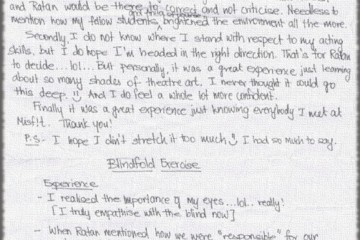 and Ratan would be there to correct and not criticise. Needless to
mention how my fellow students, brightened the environment all the more.
Secondly I do not know where I stand with respect to my acting
skills, but I do hope I'm headed in the right direction. That's for Ratan
to decide... lol... But personally, it was a great experience just learning
about so many shades of theatre art. I never thought it would go
this deep. And I do feel a whole lot more confident.
Finally it was a great experience just knowing everybody I met at
Misfit. Thank you!
P.S- I hope I didn't stretch it too much I had so much to say.
Blindfold Exercise
Experience
- I realized the importance of my eyes...lol.. really!
[I truly empathise with the blind now]
- When Ratan mentioned how we were "responsible" for our